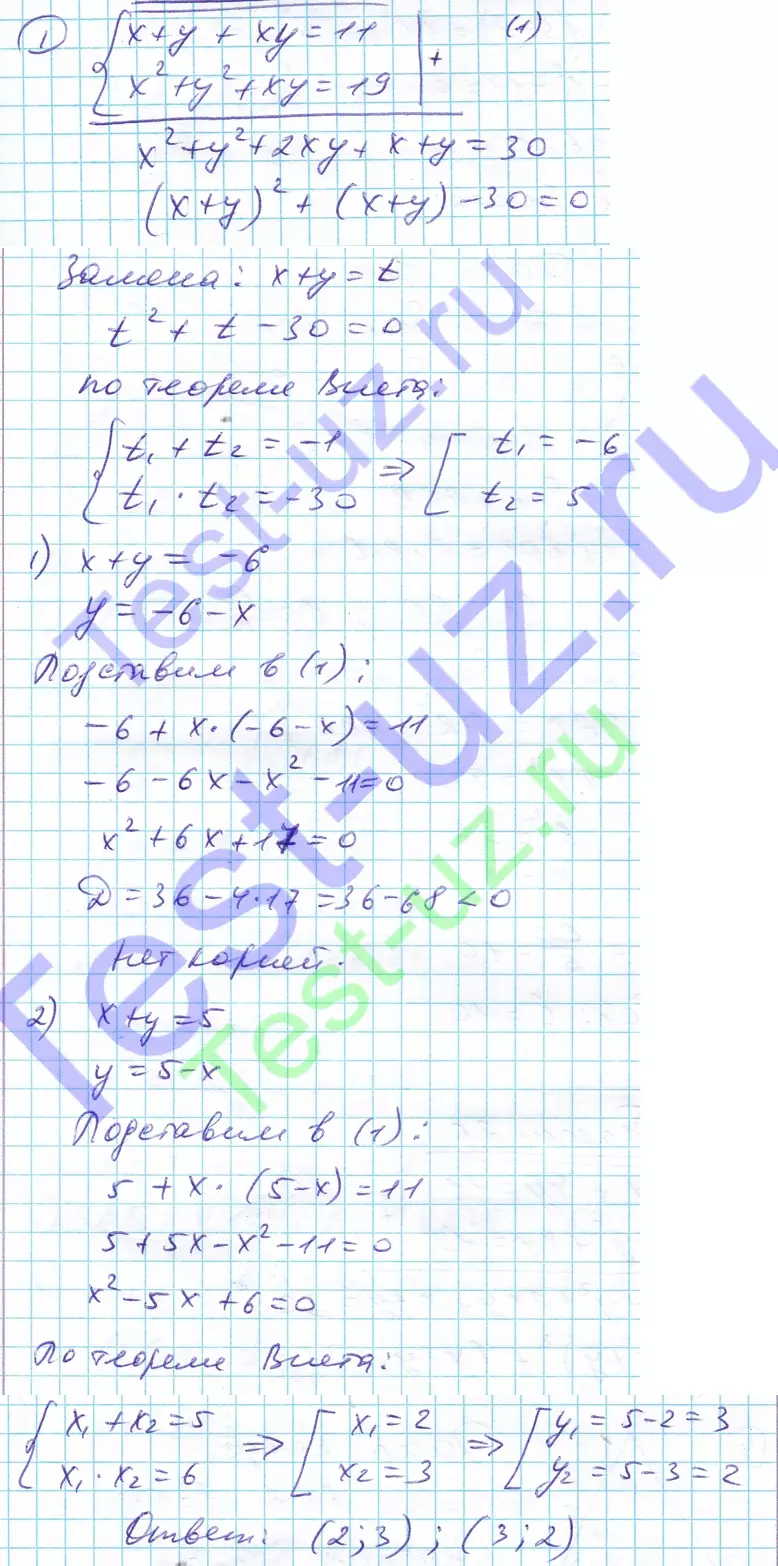 ① { x+y + xy = 11 (1)
x²+y²+xy = 19 | +
x²+y²+2xy+x+y = 30
(x+y)² + (x+y) - 30 = 0
Замена: x+y = t
t² + t - 30 = 0
по теореме Виета:
{ t₁ + t₂ = -1 ⇒ [ t₁ = -6
t₁ · t₂ = -30 t₂ = 5
1) x+y = -6
y = -6-x
Подставим в (1):
-6 + x·(-6-x) = 11
-6 - 6x - x² - 11 = 0
x² + 6x + 17 = 0
Д = 36 - 4·17 = 36 - 68 < 0
Нет корней.
2) x+y = 5
y = 5-x
Подставим в (1):
5 + x· (5-x) = 11
5 + 5x - x² - 11 = 0
x² - 5x + 6 = 0
По теореме Виета:
{ x₁ + x₂ = 5 ⇒ [ x₁ = 2 ⇒ [ y₁ = 5-2 = 3
x₁ · x₂ = 6 x₂ = 3 y₂ = 5-3 = 2
Ответ: (2;3) ; (3;2)
Test-uz.ru
Test-uz.ru
Test-uz.ru